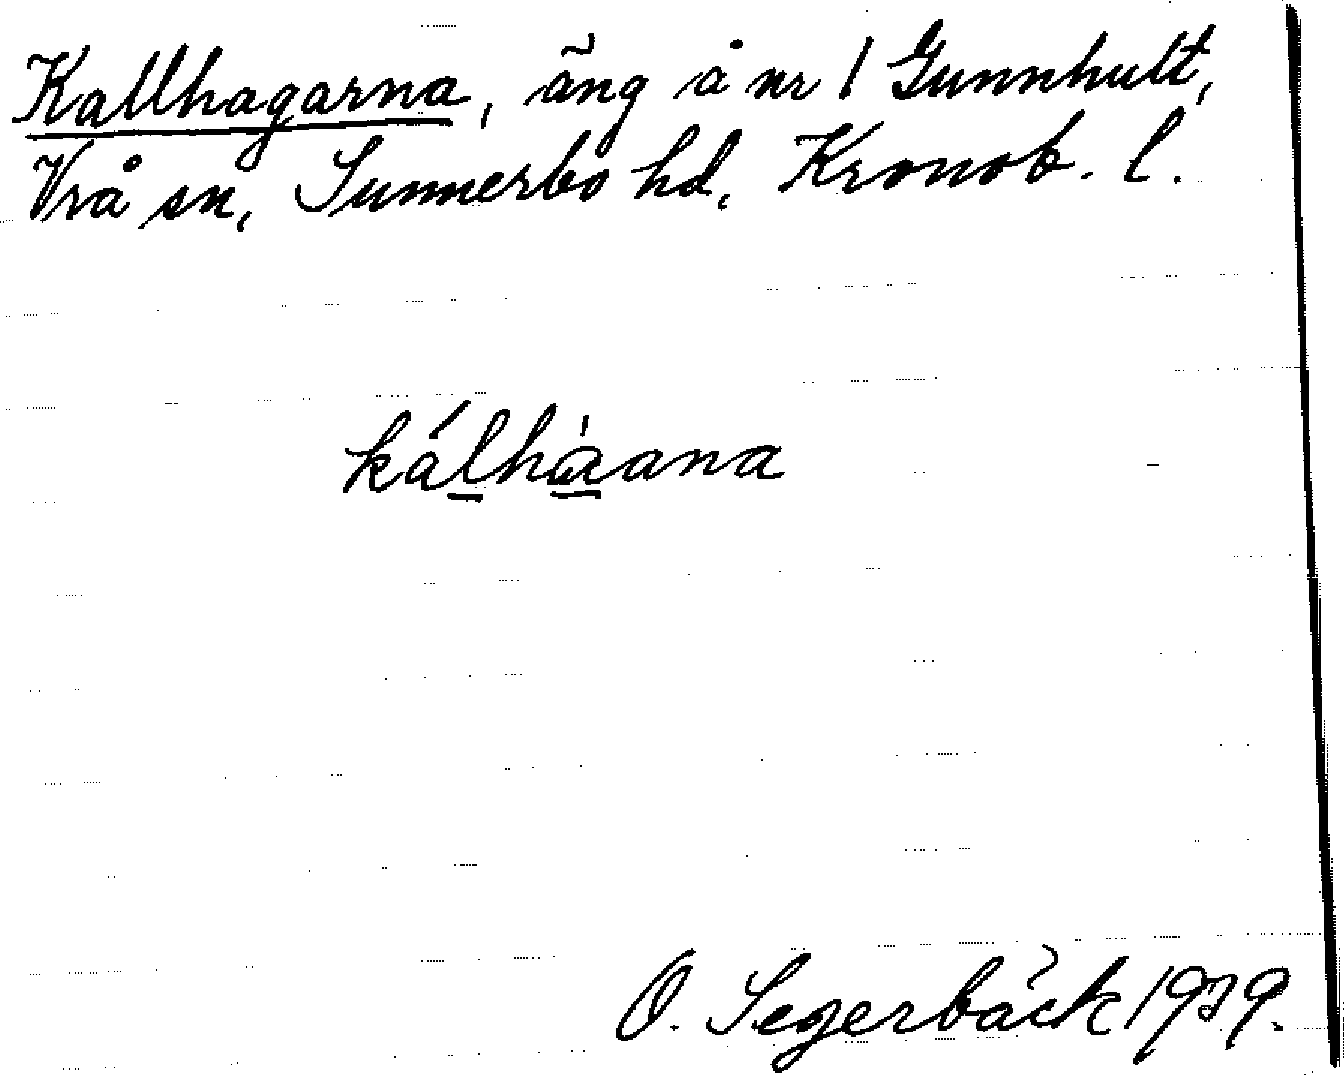 Kallhagarna, äng å nr 1 Gunnhult,
Vrå sn, Sunnerbo hd, Kronob. l.
kálhàana
O. Segerbäck 1979.